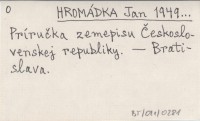 0
HROMÁDKA Jan 1949...
Príručka zemepisu Českoslo-
venskej republiky. — Brati-
slava.